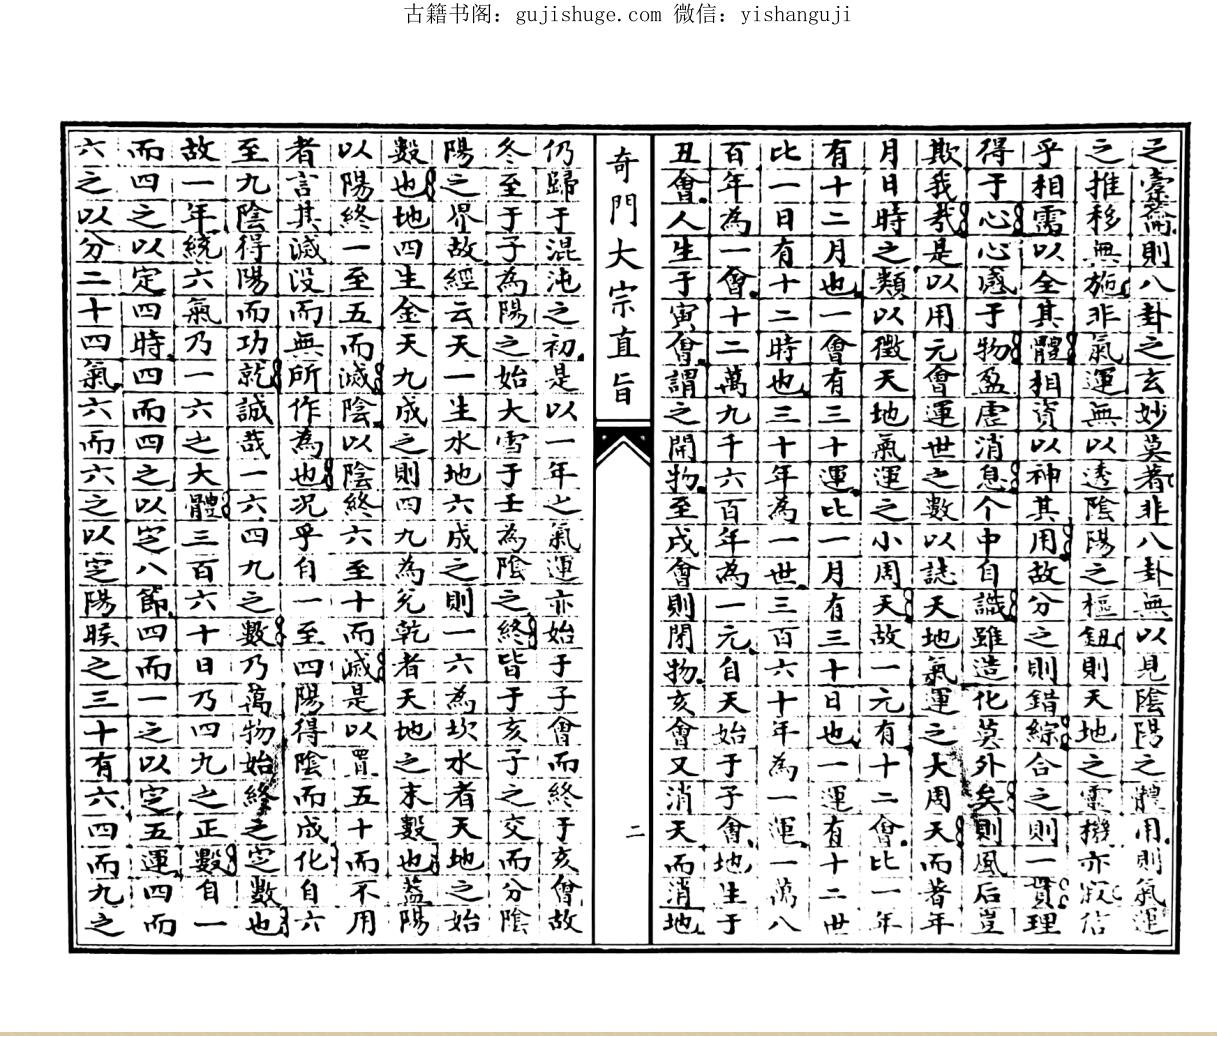 古籍书阁：gujishuge.com 微信：yishanguji
之臺籥則八卦之玄妙莫著非八卦無以見陰陽之體用則氣運
之推移無施非氣運無以透陰陽之樞鈕則天地之靈機亦寂信
乎相需以全其體相資以神其用故分之則錯綜合之則一貫理
得于心心感于物盈虛消息个中自識雖造化莫外矣則風后豈
欺我我是以用元會運世之數以誌天地氣運之大周天而著年
月日時之類以徵天地氣運之小周天故一元有十二會比一年
有十二月也一會有三十運比一月有三十日也一運有十二世
比一日有十二時也三十年為一世三百六十年為一運一萬八
百年為一會十二萬九千六百年為一元自天始于子會地生于
丑會人生于寅會謂之開物至戌會則閉物亥會又消天而消地
奇門大宗直旨
二
仍歸于混沌之初是以一年之氣運亦始于子會而終于亥會故
冬至于子為陽之始大雪于壬為陰之終皆于亥子之交而分陰
陽之界故經云天一生水地六成之則一六為坎水者天地之始
數也地四生金天九成之則四九為兌乾者天地之末數也蓋陽
以陽終一至五而滅陰以陰終六至十而滅是以置五十而不用
者言其滅沒而無所作為也況乎自一至四陽得陰而成化自六
至九陰得陽而功就誠哉一六四九之數乃萬物始終之定數也
故一年統六氣乃一六之大體三百六十日乃四九之正數自一
而四之以定四時四而四之以定八節四而一之以定五運四而
六之以分二十四氣六而六之以定陽朘之三十有六四而九之